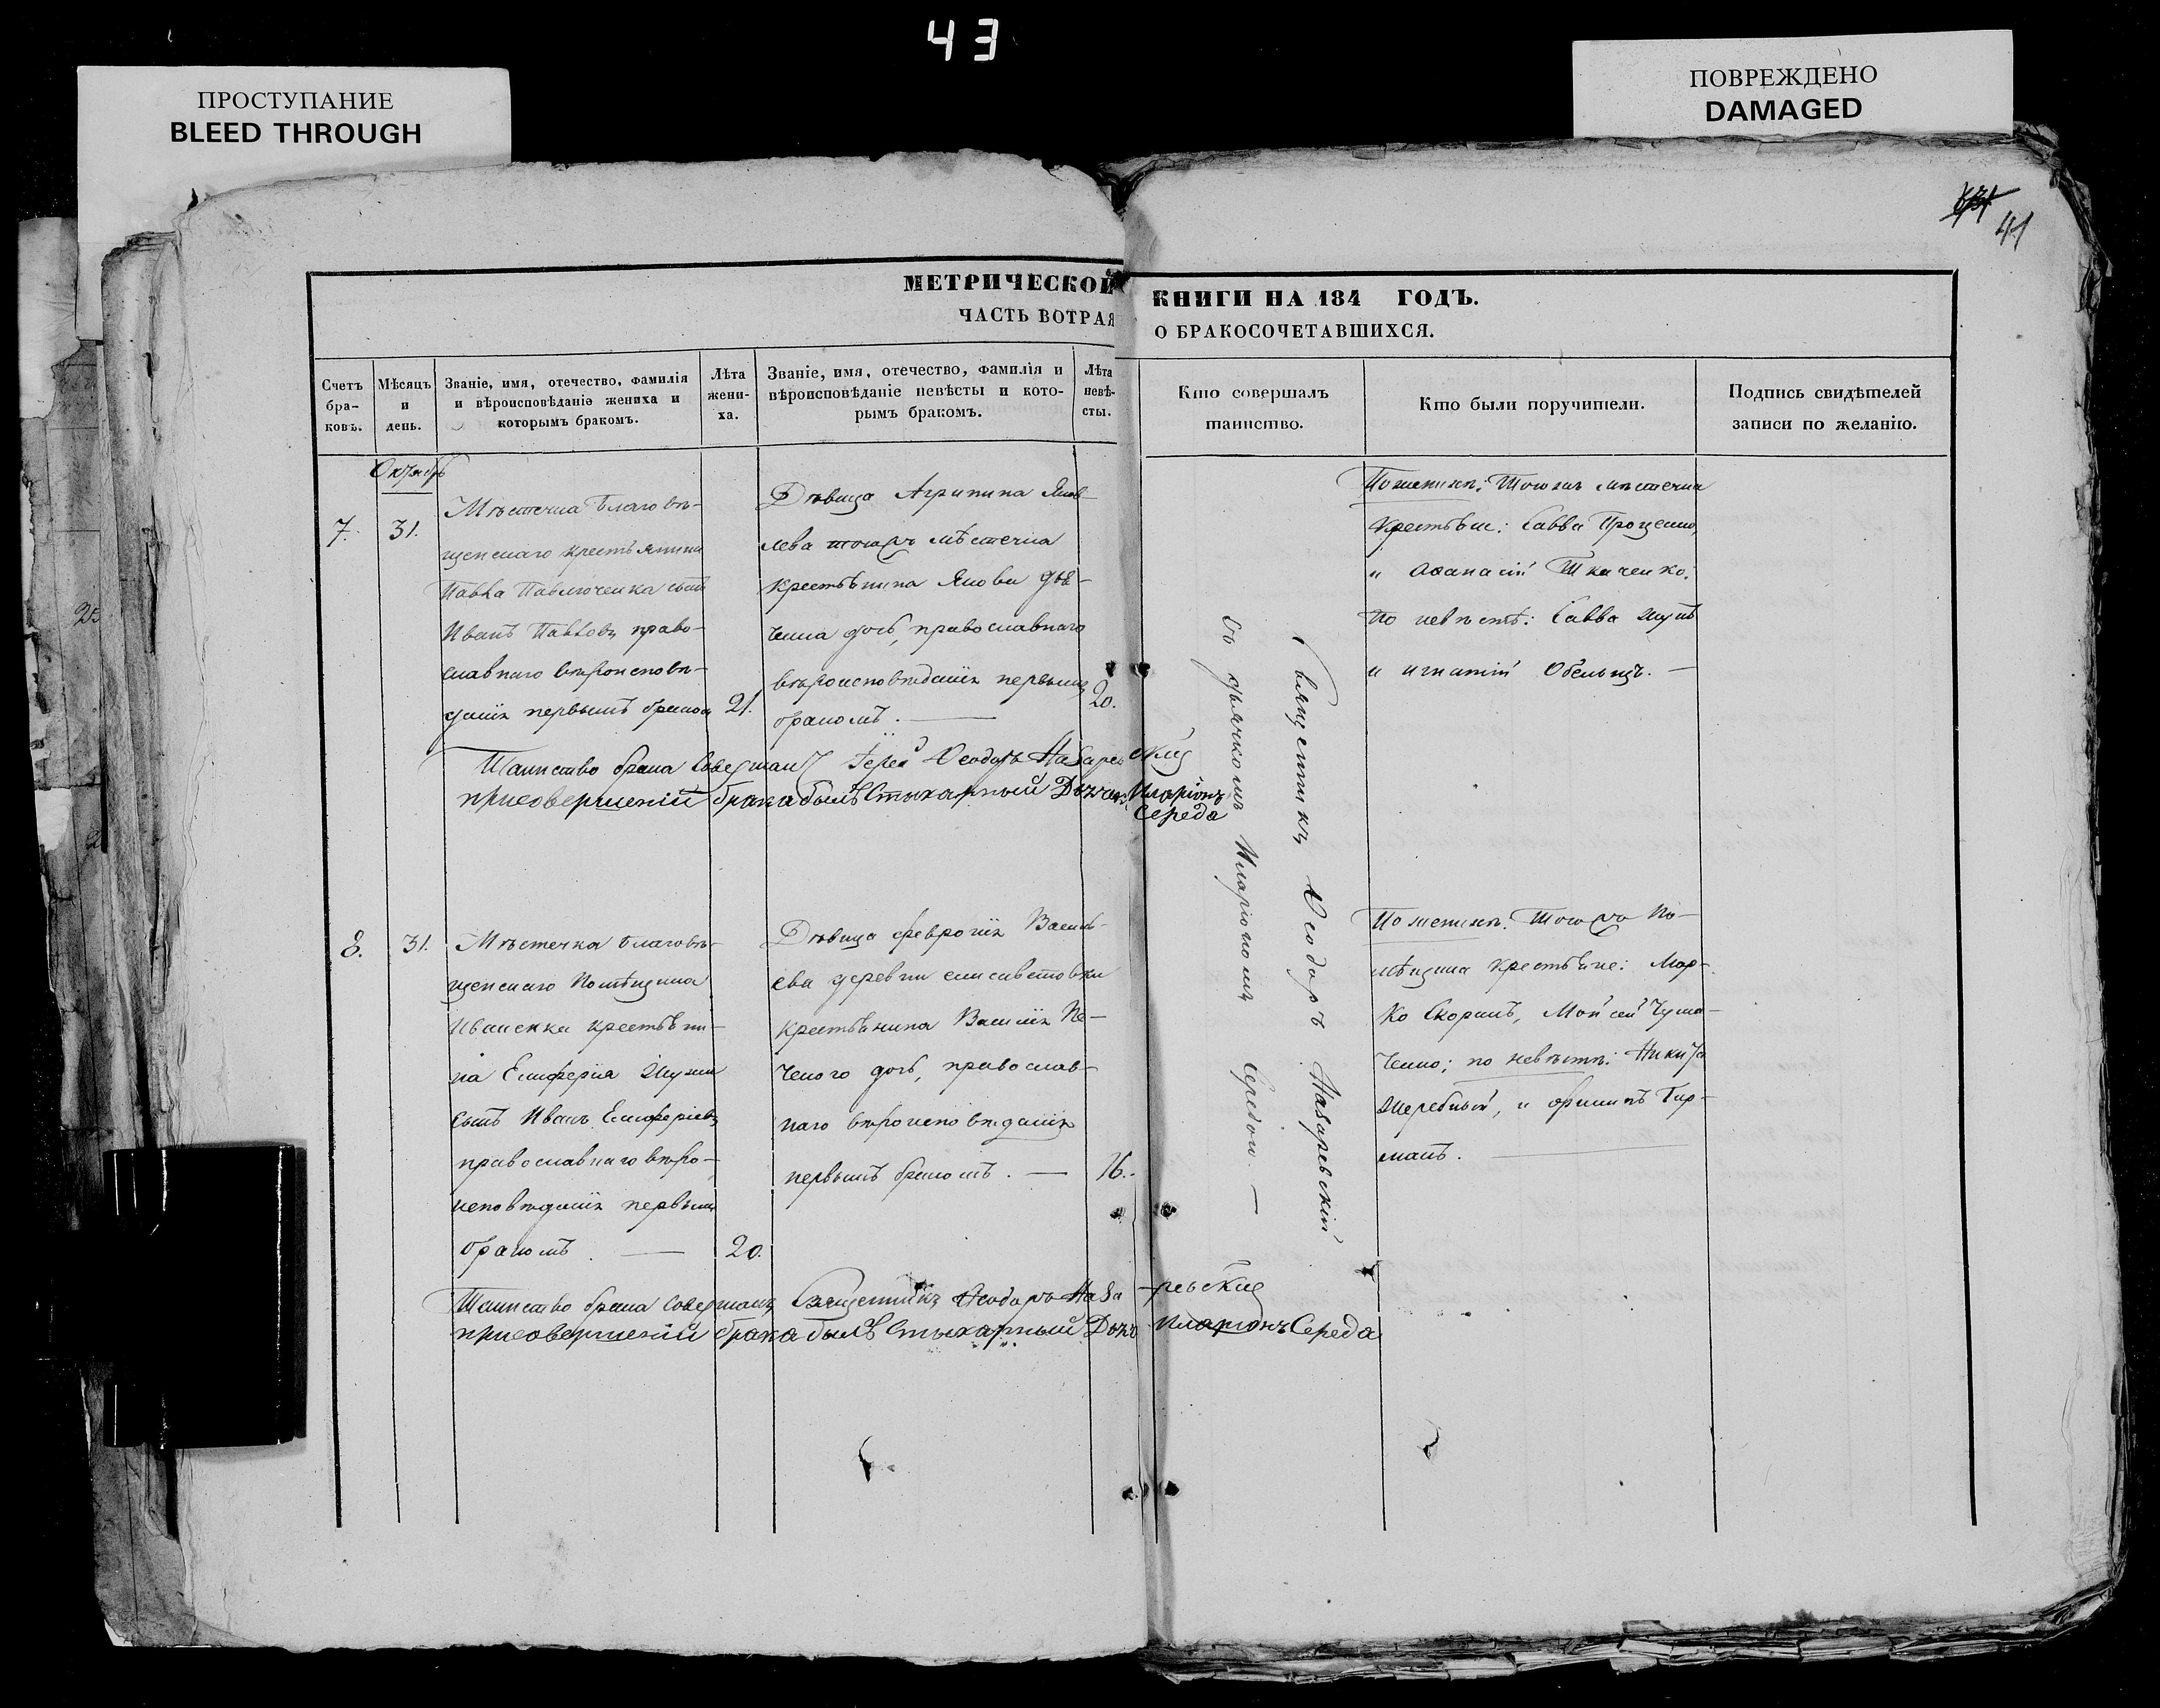 43
ПРОСТУПАНИЕ
BLEED THROUGH
ПОВРЕЖДЕНО
DAMAGED
41
МЕТРИЧЕСКОЙ КНИГИ НА 184 ГОДЪ.
ЧАСТЬ ВОТРАЯ О БРАКОСОЧЕТАВШИХСЯ.
Счетъ бра-ковъ.
Мѣсяцъ и день.
Званіе, имя, отечество, фамилія
и вѣроисповѣданіе жениха и
которымъ бракомъ.
Лѣта жени-ха.
Званіе, имя, отечество, фамилія и
вѣроисповѣданіе невѣсты и кото-
рымъ бракомъ.
Лѣта невѣ-сты.
Кто совершалъ
таинство.
Кто были поручители.
Подпись свидѣтелей
записи по желанію.
Октябрь
7. 31.
Мѣстечка Благовѣ-
щенскаго крестьянина
Павла Павлюченка сынъ
Иванъ Павловъ право-
славнаго вѣроисповѣ-
данія первымъ бракомъ
21.
Дѣвица Агрипина Яков-
лева тогожъ мѣстечка
крестьянина Якова
дочь, православнаго
вѣроисповѣданія первымъ
бракомъ.
20.
По женихѣ: Тогожъ мѣстечка
крестьяне: Савва Проценко,
и Аѳанасій Ткаченко.
По невѣстѣ: Савва
и Игнатій
Таинство брака совершалъ Іерей Ѳеодоръ Назаревскій
присовершеніи брака былъ Стихарный Дьячекъ Иларіонъ
Середа
Священникъ Ѳеодоръ Назаревскій
съ дьячкомъ Иларіономъ Середою. —
8. 31.
Мѣстечка Благовѣ-
щенскаго помѣщика
Иваненка крестьяни-
на Елиферія
сынъ Иванъ Елиферіевъ
православнаго вѣро-
исповѣданія первымъ
бракомъ. —
20.
Дѣвица Февронія Василь-
ева деревни Елисаветовки
крестьянина Василія Пе-
ченого дочь, православ-
наго вѣроисповѣданія
первымъ бракомъ. —
16.
По женихѣ: Тогожъ по-
мѣщика крестьяне: Мар-
ко Скорикъ, Мойсей Чума-
ченко; по невѣстѣ: Никита
Жеребный, и Филипъ Гир-
манъ.
Таинство брака совершалъ Священникъ Ѳеодоръ Назаревскій
присовершеніи брака былъ Стихарный Дьяч Иларіонъ Середа